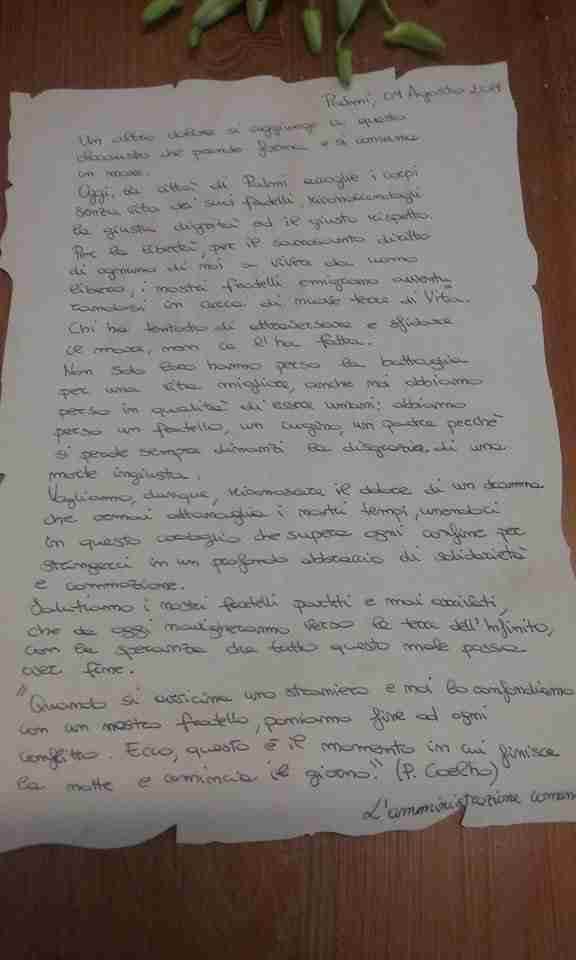 Palmi, 04 Agosto
Un altro dolore si aggiunge a questo
olocausto che prende forma e si consuma
in mare.
Oggi, la città di Palmi accoglie i corpi
senza vita dei suoi fratelli, riconoscendogli
la giusta dignità ed il giusto rispetto.
Per la libertà, per il sacrosanto diritto
di ognuno di noi a vivere da uomo
libero, i nostri fratelli emigrano avventu
randosi in cerca di nuove terre di Vita.
Chi ha tentato di attraversare e sfidare
il mare, non ce l'ha fatta.
Non solo loro hanno perso la battaglia
per una vita migliore, anche noi abbiamo
perso in qualità di esseri umani: abbiamo
perso un fratello, un cugino, un padre perchè
si perde sempre dinanzi la disgrazia di una
morte ingiusta.
Vogliamo, dunque, riconoscere il dolore di un dramma
che ormai attanaglia i nostri tempi, unendoci
in questo cordoglio che supera ogni confine per
stringerci in un profondo abbraccio di solidarietà
e commozione.
Salutiamo i nostri fratelli partiti e mai arrivati,
che da oggi navigheranno verso la terra dell'Infinito,
con la speranza che tutto questo male possa
aver fine.
"Quando si avvicina uno straniero e noi lo confondiamo
con un nostro fratello, poniamo fine ad ogni
conflitto. Ecco, questo è il momento in cui finisce
la notte e comincia il giorno." (P. Coelho)
L'amministrazione comun